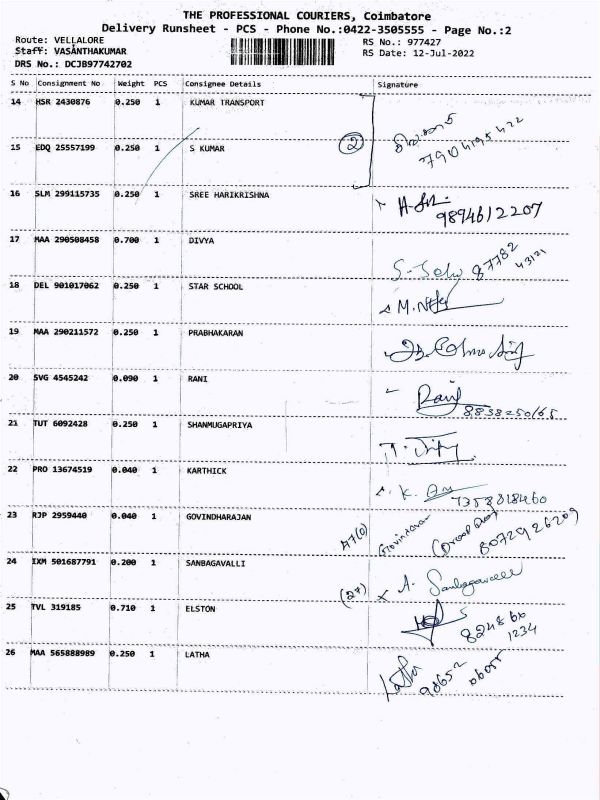 THE PROFESSIONAL COURIERS, Coimbatore
Delivery Runsheet - PCS - Phone No.:0422-3505555 - Page No.:2
Route: VELLALORE
RS No.: 977427
Staff: VASANTHAKUMAR
RS Date: 12-Jul-2022
DRS No.: DCJB97742702
S No Consignment No Weight PCS Consignee Details Signature
14 HSR 2430876 0.250 1 KUMAR TRANSPORT
15 EDQ 25557199 0.250 1 S KUMAR 2 7904195422
16 SLM 299115735 0.250 1 SREE HARIKRISHNA
9894612207
17 MAA 290508458 0.700 1 DIVYA 87782
43121
18 DEL 901017062 0.250 1 STAR SCHOOL
19 MAA 290211572 0.250 1 PRABHAKARAN
20 SVG 4545242 0.090 1 RANI Rani
8838250165
21 TUT 6092428 0.250 1 SHANMUGAPRIYA
22 PRO 13674519 0.040 1 KARTHICK K.
7358318460
23 RJP 2959440 0.040 1 GOVINDHARAJAN 47(0)
8072926209
24 IXM 501687791 0.200 1 SANBAGAVALLI (27) A. Sanbagavalli
25 TVL 319185 0.710 1 ELSTON
1234
26 MAA 565888989 0.250 1 LATHA Latha